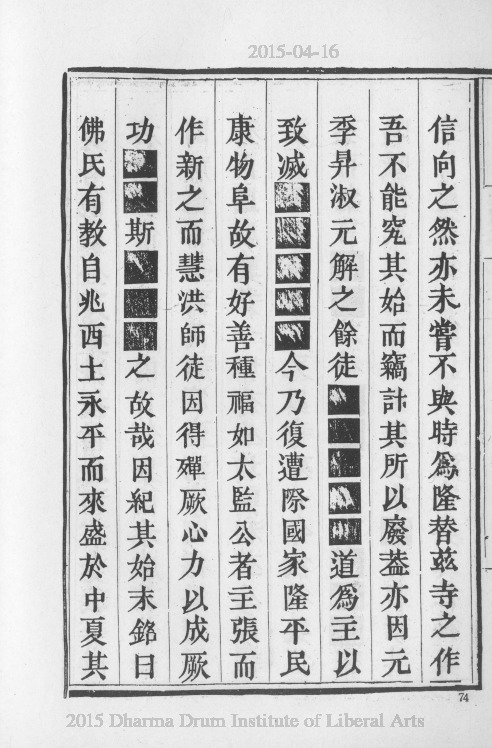 2015-04-16
信向之然亦未嘗不與時爲隆替茲寺之作
吾不能究其始而竊計其所以廢葢亦因元
季昇淑元解之餘徒道爲主以
致滅今乃復遭際國家隆平民
康物阜故有好善種福如太監公者主張而
作新之而慧洪師徒因得殫厥心力以成厥
功斯之故哉因紀其始末銘曰
佛氏有教自兆西土永平而來盛於中夏其
74
2015 Dharma Drum Institute of Liberal Arts